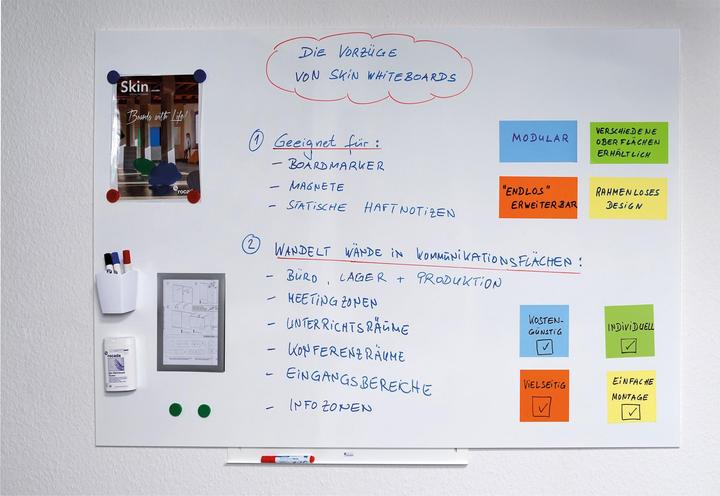 DIE VORZÜGE
VON SKIN WHITEBOARDS
Skin
Boards with Life!
rocada
1 Geeignet für:
- BOARDMARKER
- MAGNETE
- STATISCHE HAFTNOTIZEN
MODULAR
VERSCHIEDENE
OBERFLÄCHEN
ERHÄLTLICH
"ENDLOS"
ERWEITERBAR
RAHMENLOSES
DESIGN
2 WANDELT WÄNDE IN KOMMUNIKATIONSFLÄCHEN:
- BÜRO, LAGER + PRODUKTION
- MEETINGZONEN
- UNTERRICHTSRÄUME
- KONFERENZRÄUME
- EINGANGSBEREICHE
- INFOZONEN
KOSTEN-
GÜNSTIG
INDIVIDUELL
VIELSEITIG
EINFACHE
MONTAGE
rocada